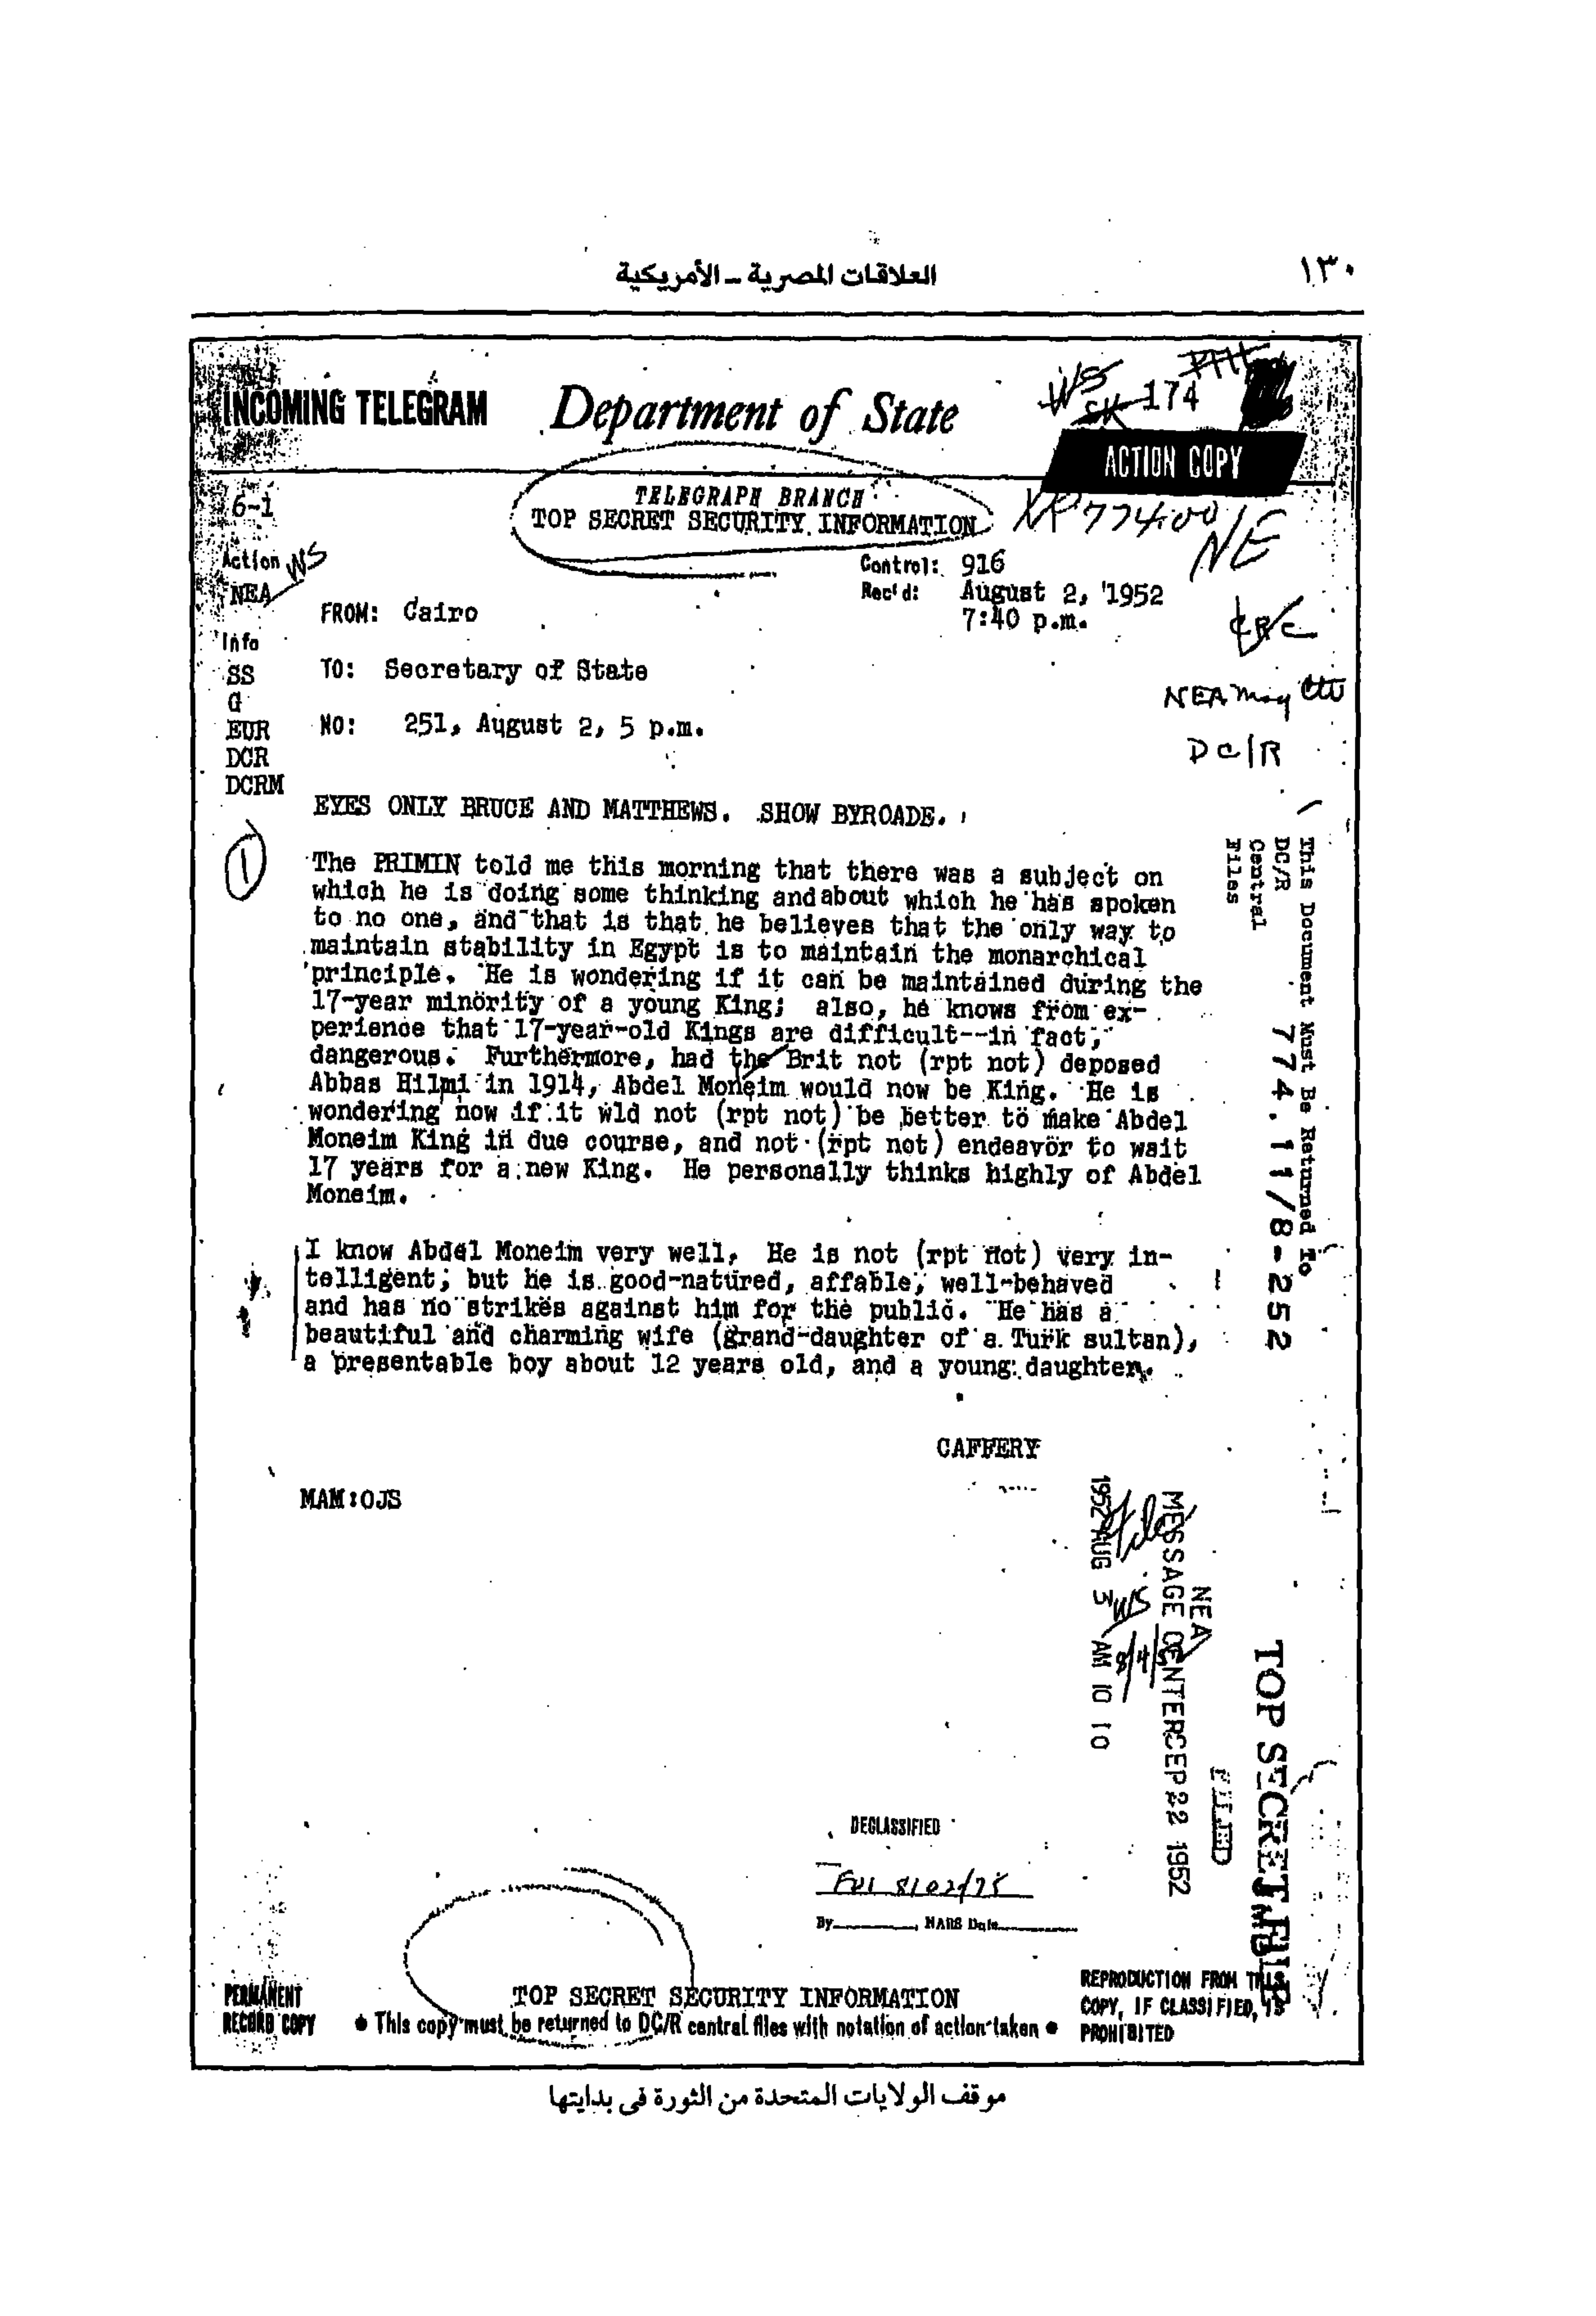 العلاقات المصرية ـ الأمريكية
١٣٠
INCOMING TELEGRAM
Department of State
WS
SK 174
ACTION COPY
6-1
TELEGRAPH BRANCH
TOP SECRET SECURITY INFORMATION
NE
Action WS
NEA
Control: 916
Rec'd: August 2, 1952
7:40 p.m.
FROM: Cairo
Info
SS
G
EUR
DCR
DCRM
TO: Secretary of State
NO: 251, August 2, 5 p.m.
NEA
DC/R
EYES ONLY BRUCE AND MATTHEWS. SHOW BYROADE.
1
The PRIMIN told me this morning that there was a subject on
which he is doing some thinking and about which he has spoken
to no one, and that is that he believes that the only way to
maintain stability in Egypt is to maintain the monarchical
principle. He is wondering if it can be maintained during the
17-year minority of a young King; also, he knows from ex-
perience that 17-year-old Kings are difficult--in fact,
dangerous. Furthermore, had the Brit not (rpt not) deposed
Abbas Hilmi in 1914, Abdel Moneim would now be King. He is
wondering now if it wld not (rpt not) be better to make Abdel
Moneim King in due course, and not (rpt not) endeavor to wait
17 years for a new King. He personally thinks highly of Abdel
Moneim.
I know Abdel Moneim very well. He is not (rpt not) very in-
telligent; but he is good-natured, affable, well-behaved
and has no strikes against him for the public. He has a
beautiful and charming wife (grand-daughter of a Turk sultan),
a presentable boy about 12 years old, and a young daughter.
CAFFERY
MAM:OJS
This Document Must Be Returned To
DC/R
Central
Files
774.11/8-252
1952 AUG 3 AM 10 10
File
WS
NEA
MESSAGE CENTER
SEP 22 1952
FILED
TOP SECRET FILE
DECLASSIFIED
By , NARS Date
PERMANENT
RECORD COPY
TOP SECRET SECURITY INFORMATION
• This copy must be returned to DC/R central files with notation of action taken •
REPRODUCTION FROM THIS
COPY, IF CLASSIFIED, IS
PROHIBITED
موقف الولايات المتحدة من الثورة فى بدايتها